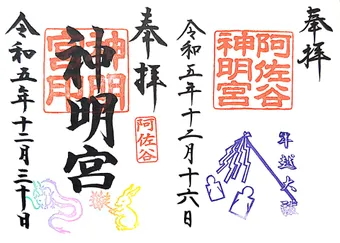 奉拝
阿佐谷
神明宮
年越大祓
令和五年十二月十六日
奉拝
阿佐谷
神明宮
神明宮
令和五年十二月三十日